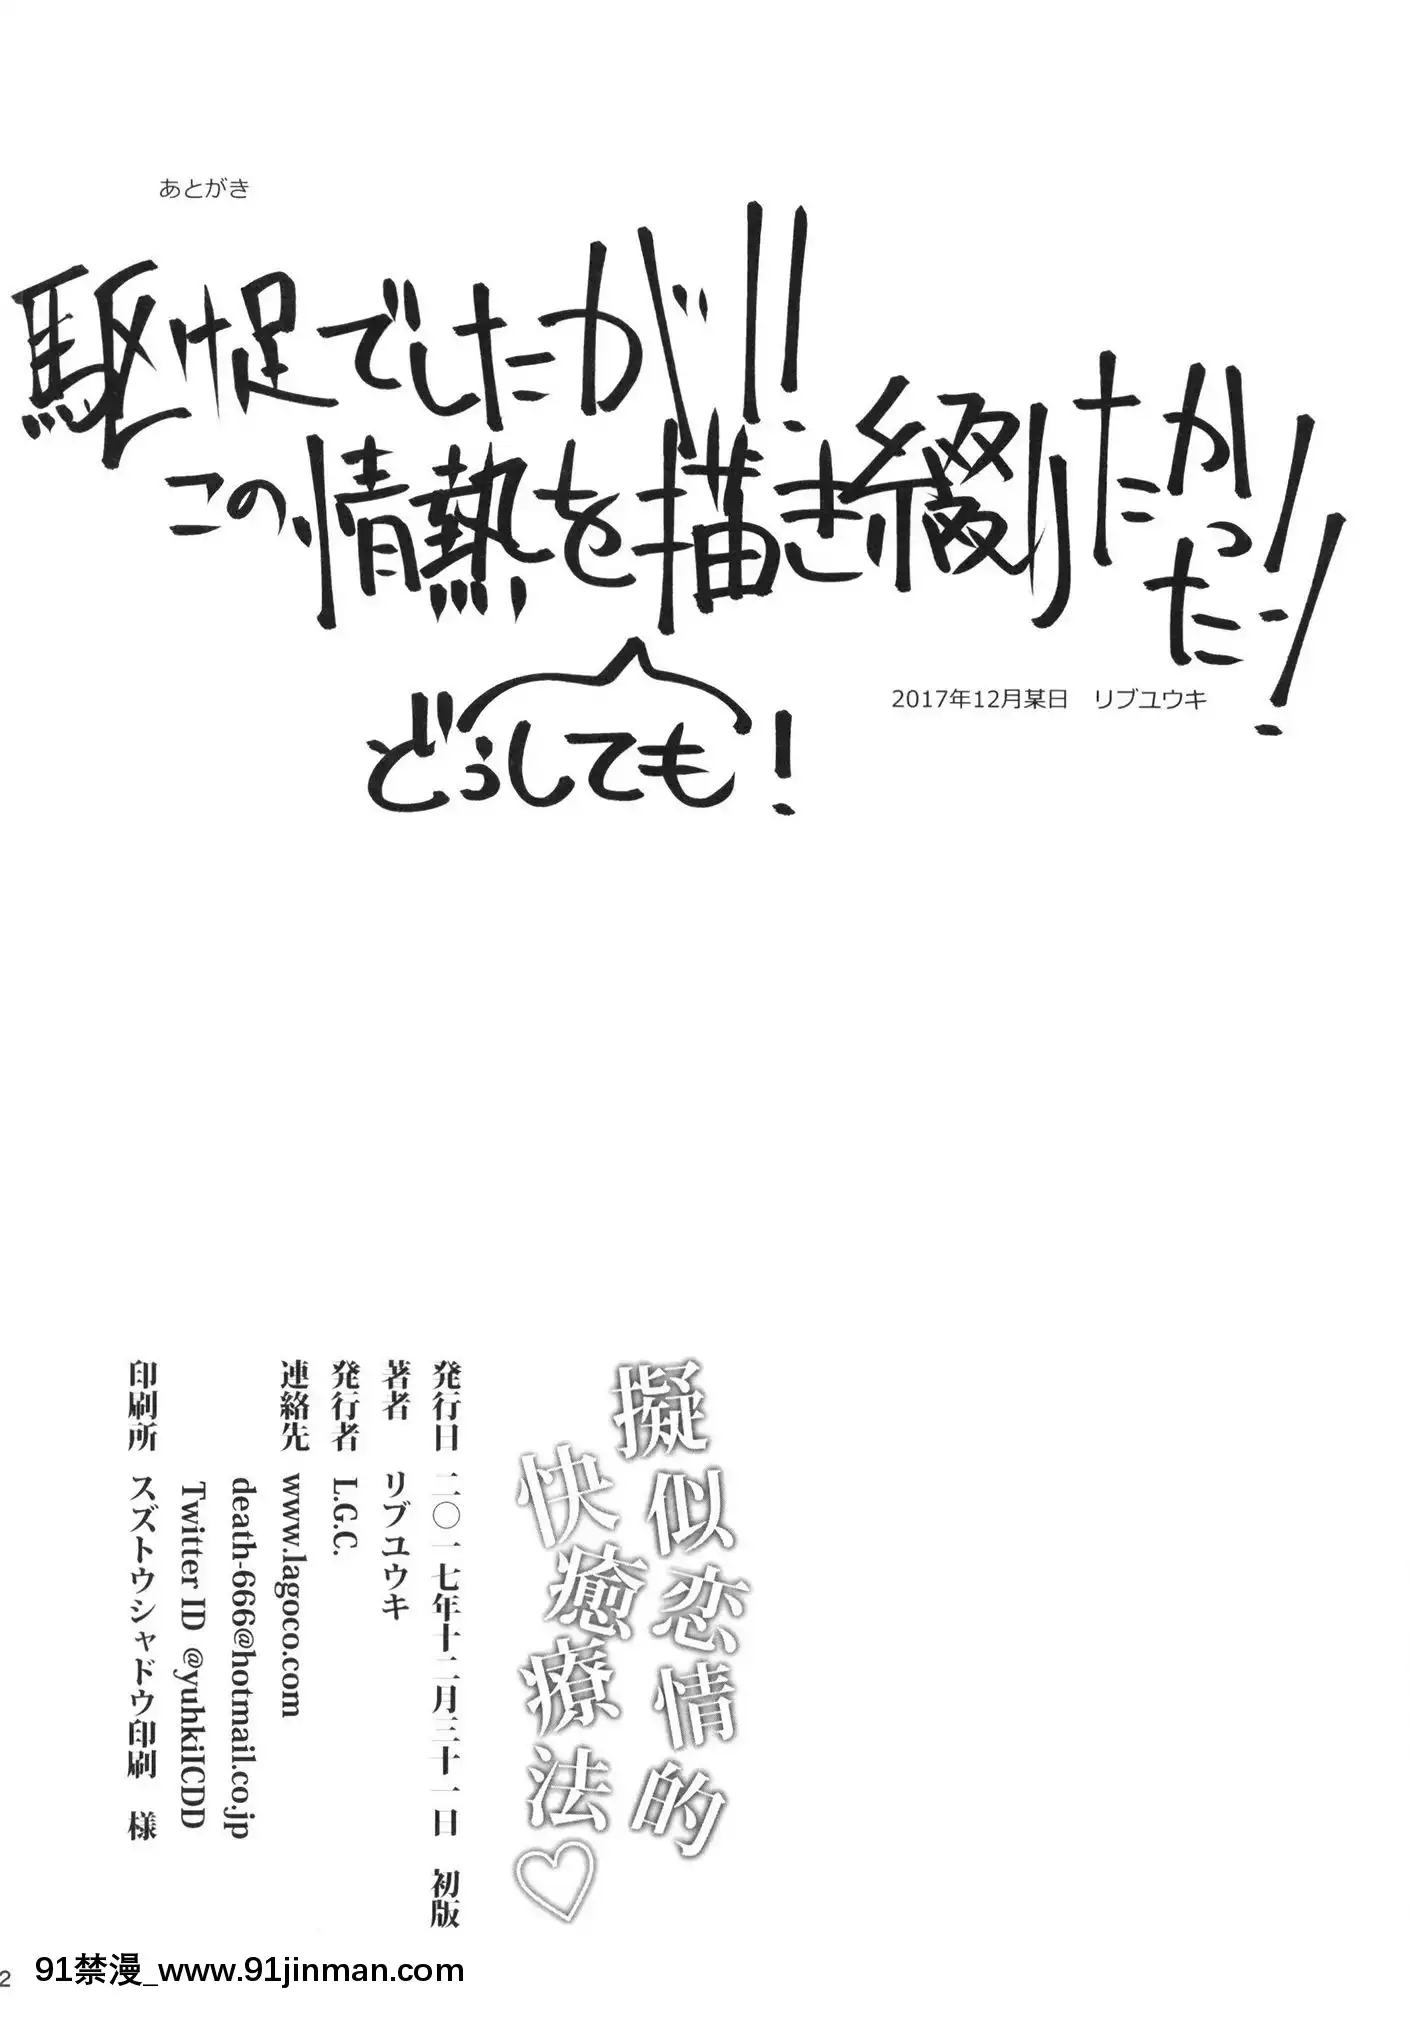 あとがき
駆け足でしたが!!
この情熱を描き綴りたかった!!
どうしても!
2017年12月某日 リブユウキ
擬似恋情的
快癒療法♡
発行日 二〇一七年十二月三十一日 初版
著者 リブユウキ
発行者 L.G.C.
連絡先 www.lagoco.com
death-666@hotmail.co.jp
Twitter ID @yuhkiICDD
印刷所 スズトウシャドウ印刷 様
2
91禁漫_www.91jinman.com